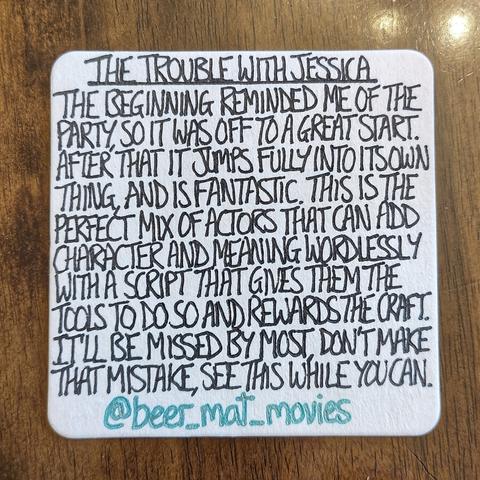 THE TROUBLE WITH JESSICA
THE BEGINNING REMINDED ME OF THE
PARTY, SO IT WAS OFF TO A GREAT START.
AFTER THAT IT JUMPS FULLY INTO ITS OWN
THING, AND IS FANTASTIC. THIS IS THE
PERFECT MIX OF ACTORS THAT CAN ADD
CHARACTER AND MEANING WORDLESSLY
WITH A SCRIPT THAT GIVES THEM THE
TOOLS TO DO SO AND REWARDS THE CRAFT.
IT'LL BE MISSED BY MOST, DON'T MAKE
THAT MISTAKE, SEE THIS WHILE YOU CAN.
@beer_mat_movies